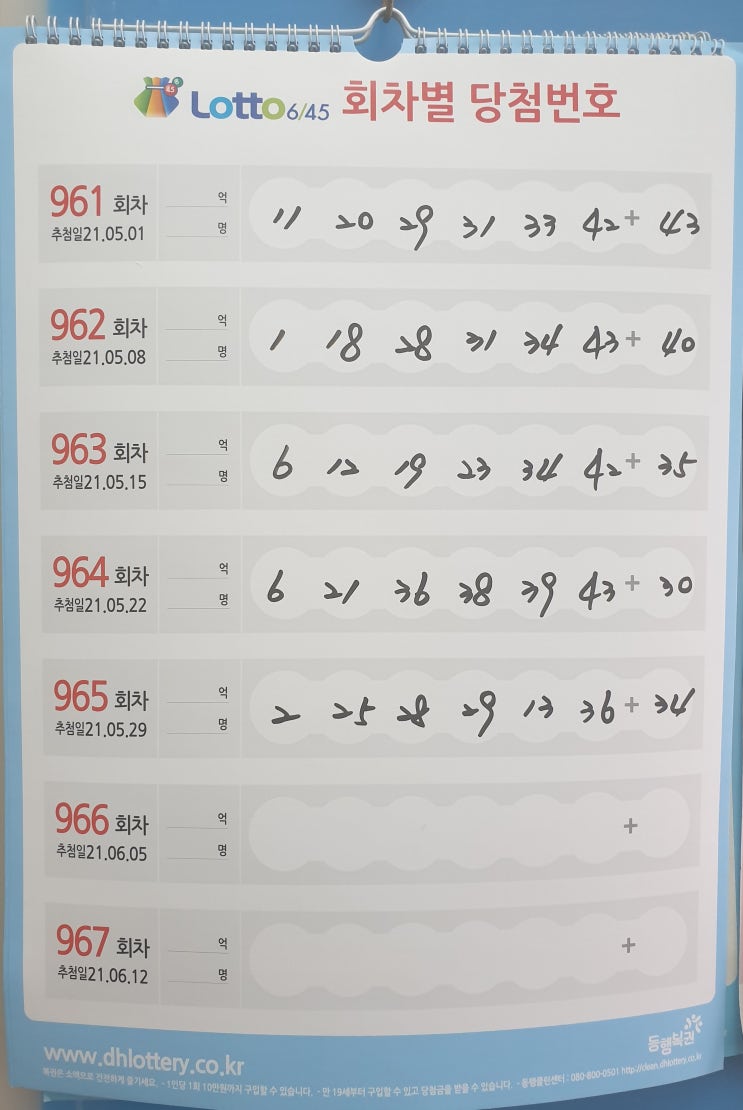 Lotto6/45 회차별 당첨번호
961 회차 억 11 20 29 31 33 42 + 43
추첨일21.05.01 명
962 회차 억 1 18 28 31 34 43 + 40
추첨일21.05.08 명
963 회차 억 6 12 19 23 34 42 + 35
추첨일21.05.15 명
964 회차 억 6 21 36 38 39 43 + 30
추첨일21.05.22 명
965 회차 억 2 25 28 29 13 36 + 34
추첨일21.05.29 명
966 회차 억 +
추첨일21.06.05 명
967 회차 억 +
추첨일21.06.12 명
www.dhlottery.co.kr 동행복권
복권은 소액으로 건전하게 즐기세요. - 1인당 1회 10만원까지 구입할 수 있습니다. - 만 19세부터 구입할 수 있고 당첨금을 받을 수 있습니다. - 동행클린센터 : 080-800-0501 http://clean.dhlottery.co.kr